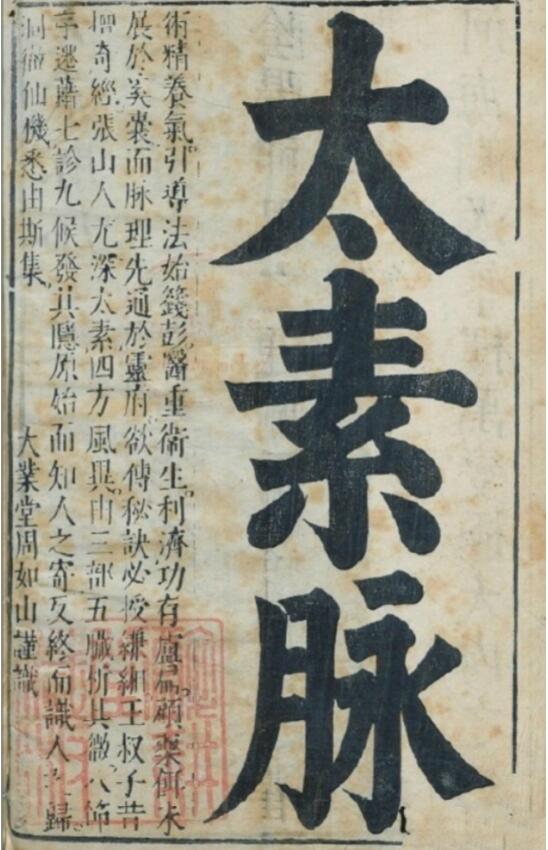 太素脉
術精養氣引導法始籛彭醫重衛生利濟功存盧扁顧藥餌未
展於奚囊而脉理先通於靈府欲傳秘訣必授緗王叔子昔
增奇經張山人尤深太素四方風異由三部五臟析其微八節
迷蕭士診九候發其隱原始而知人之寄反終而識人之歸
洞徹仙機悉由斯集
大業堂周如山謹識